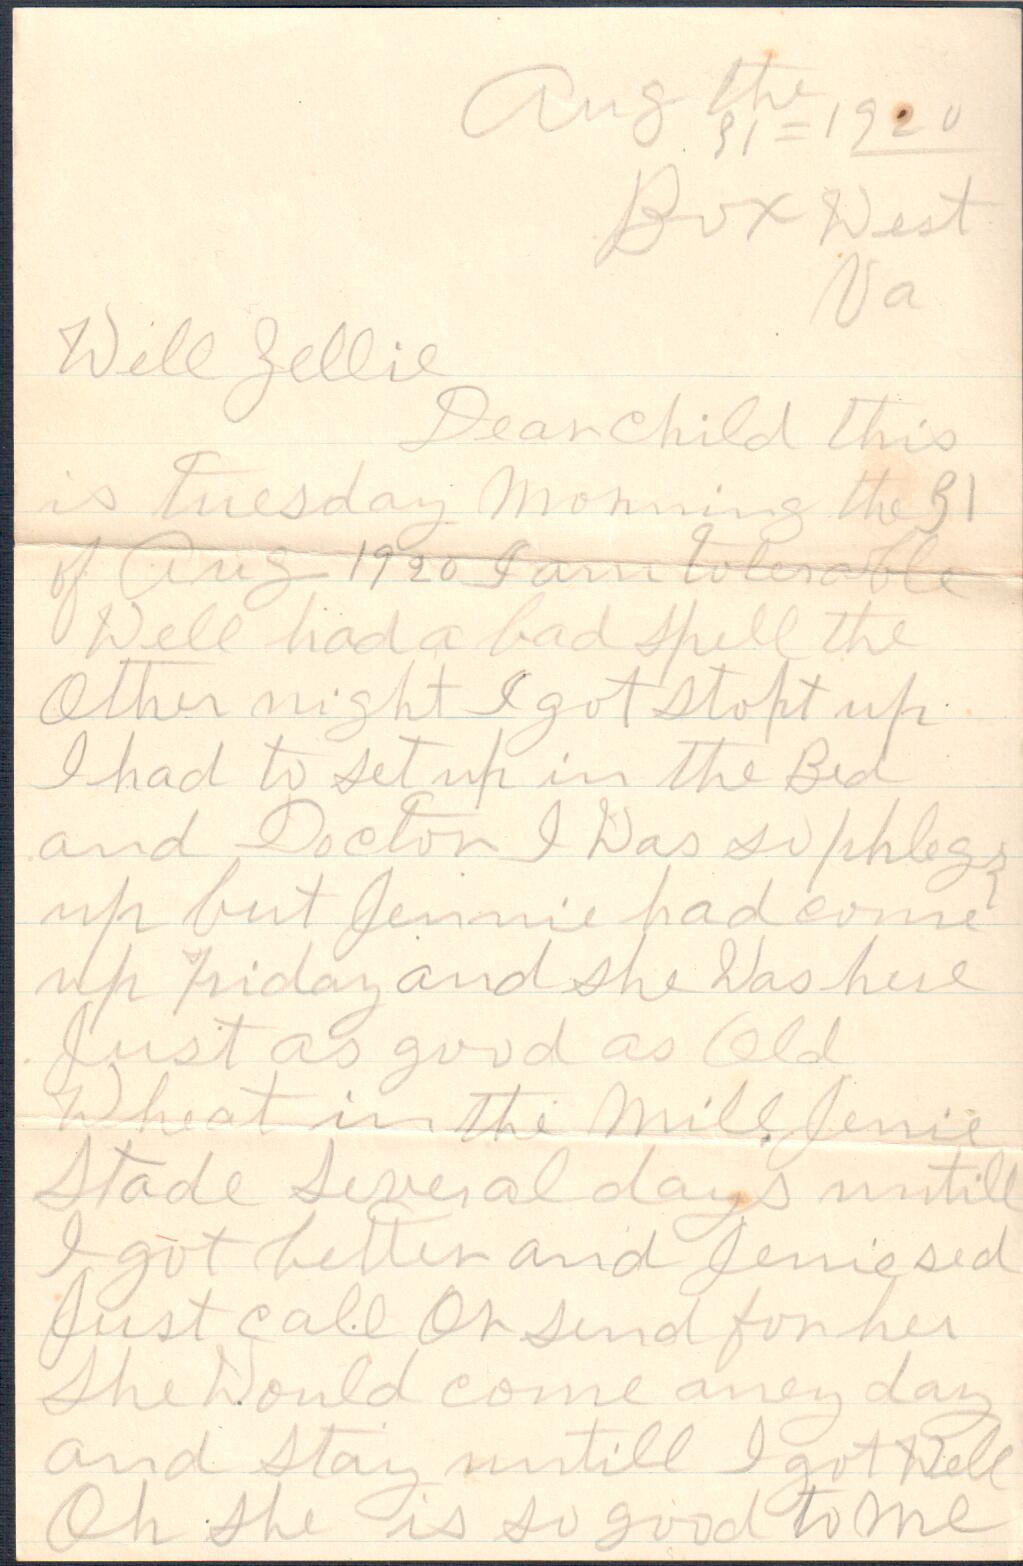 Aug the
31 = 1920
Box West
Va
Well Zellie
Dear child this
is Tuesday Morning the 31
of Aug 1920 I am tolerable
Well had a bad spell the
Other night I got stopt up
I had to set up in the Bed
and Doctor I Was so phlegg
up but Jennie had come
up Friday and she Was here
Just as good as Old
Wheat in the Mill. Jenie
Stade Several days untill
I got better and Jenie sed
Just call Or send for her
She Would come aney day
and stay untill I got Well
Oh she is so good to Me